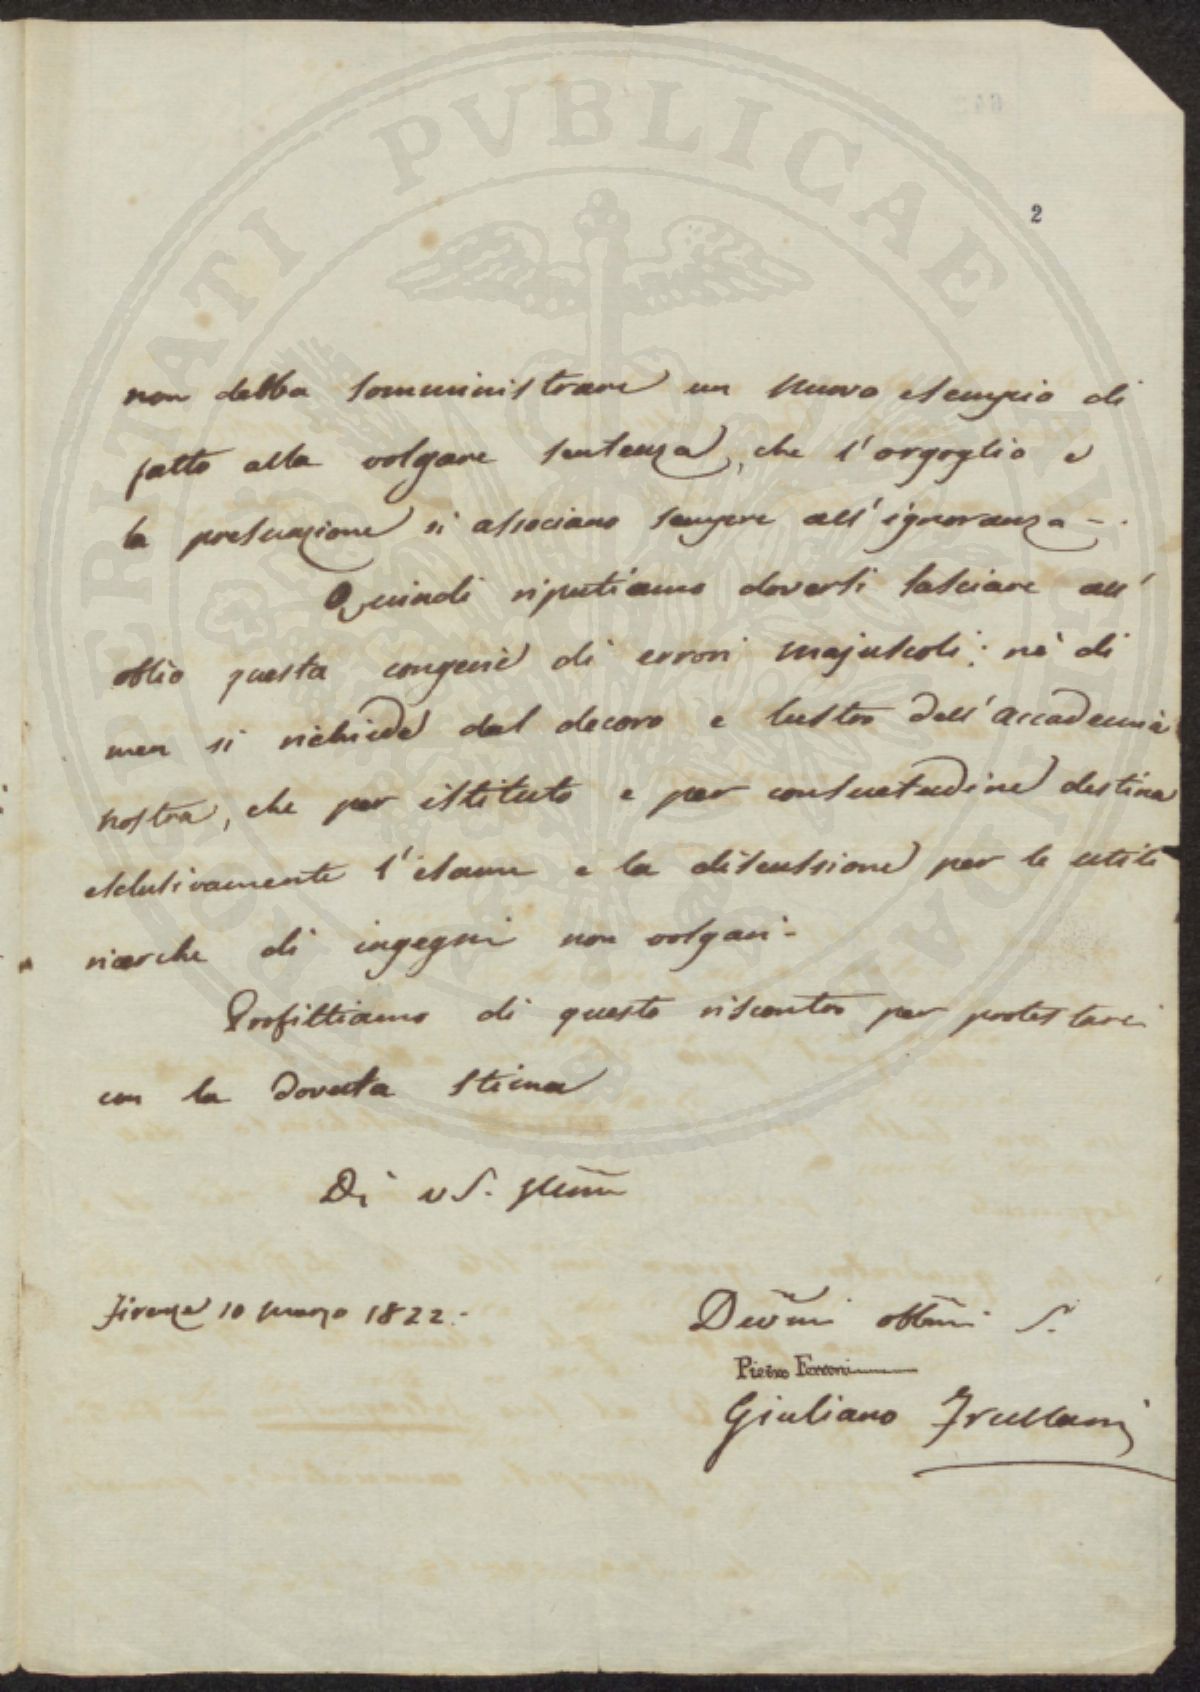 PROSPERITATI PVBLICAE AVGENDAE
2
non debba somministrare un nuovo esempio di
fatto alla volgare sentenza, che l'orgoglio e
la presunzione si associano sempre all'ignoranza -.
Quindi riputiamo doversi lasciare all'
oblìo questa congerie di errori majuscoli; nè di
men si richiede dal decoro e lustro dell'Accademia
nostra, che per istituto e per consuetudine destina
esclusivamente l'esame e la discussione per le utili
ricerche di ingegni non volgari -
Profittiamo di questo riscontro per protestarci
con la dovuta stima
Di VS. Illma
Firenze 10 Marzo 1822.
Devmi obbmi S.
Pietro Ferroni
Giuliano Frullani